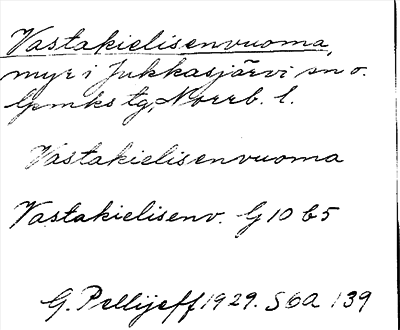 Vastakielisenvuoma,
myr i Jukkasjärvi sn o.
lpmks tg, Norrb. l.
Vastakielisenvuoma
Vastakielisenv. G 10 b5
G. Pellijeff 1929. S 6a 139